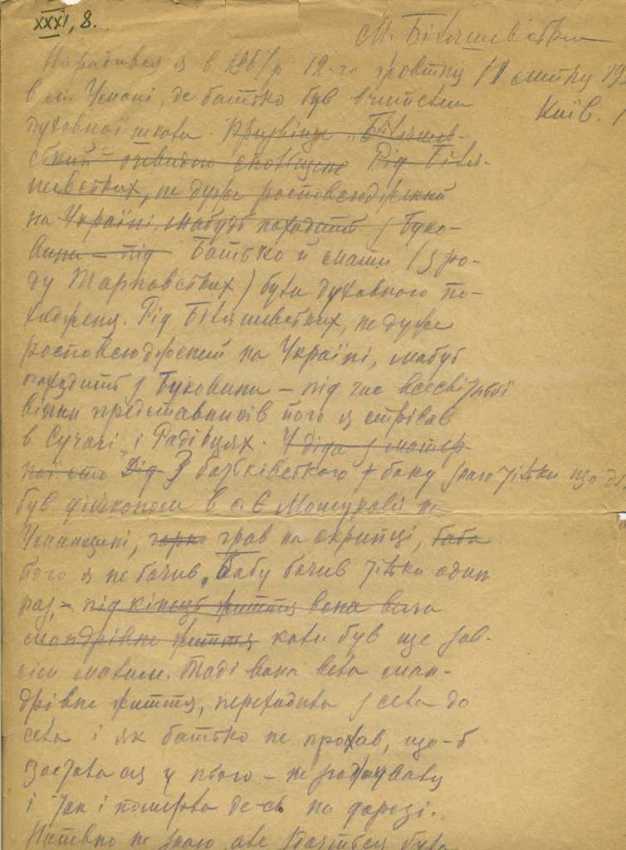 XXXI, 8.
М. Біляшевський
Народився я в 1867 р 12-го
в м. Умані, де батько був вчителем
Київ.
духовної школи. Прізвище "Біляшев-
ський" очевидно Рід Біля-
шевських, не дуже росповсюджений
на Україні, мабуть походить з Буко-
вини – під Батько й мати (з ро-
ду Марковських) були духовного по-
ходженя. Рід Біляшевських, не дуже
росповсюджений на Україні, мабуть
походить з Буковини – під час всесвітньої
війни представників його я стрівав
в Сучаві і Радівцях. У діда з матер-
Дід З батьківського боку знаю тілько що
був дияконом в с.
Уманщині, гарно грав на скрипці, баба
його я не бачив, бабу бачив тілько один
раз, – під кінець життя вона вела
мандрівне життя коли був ще зов-
сім малим. Тоді вона вела ман-
дрівне життя, переходила з села до
села і як батько не прохав, що-б
зостала ся у нього – не
і так і померла де-сь по дорозі.
Напевно не знаю, але здається була